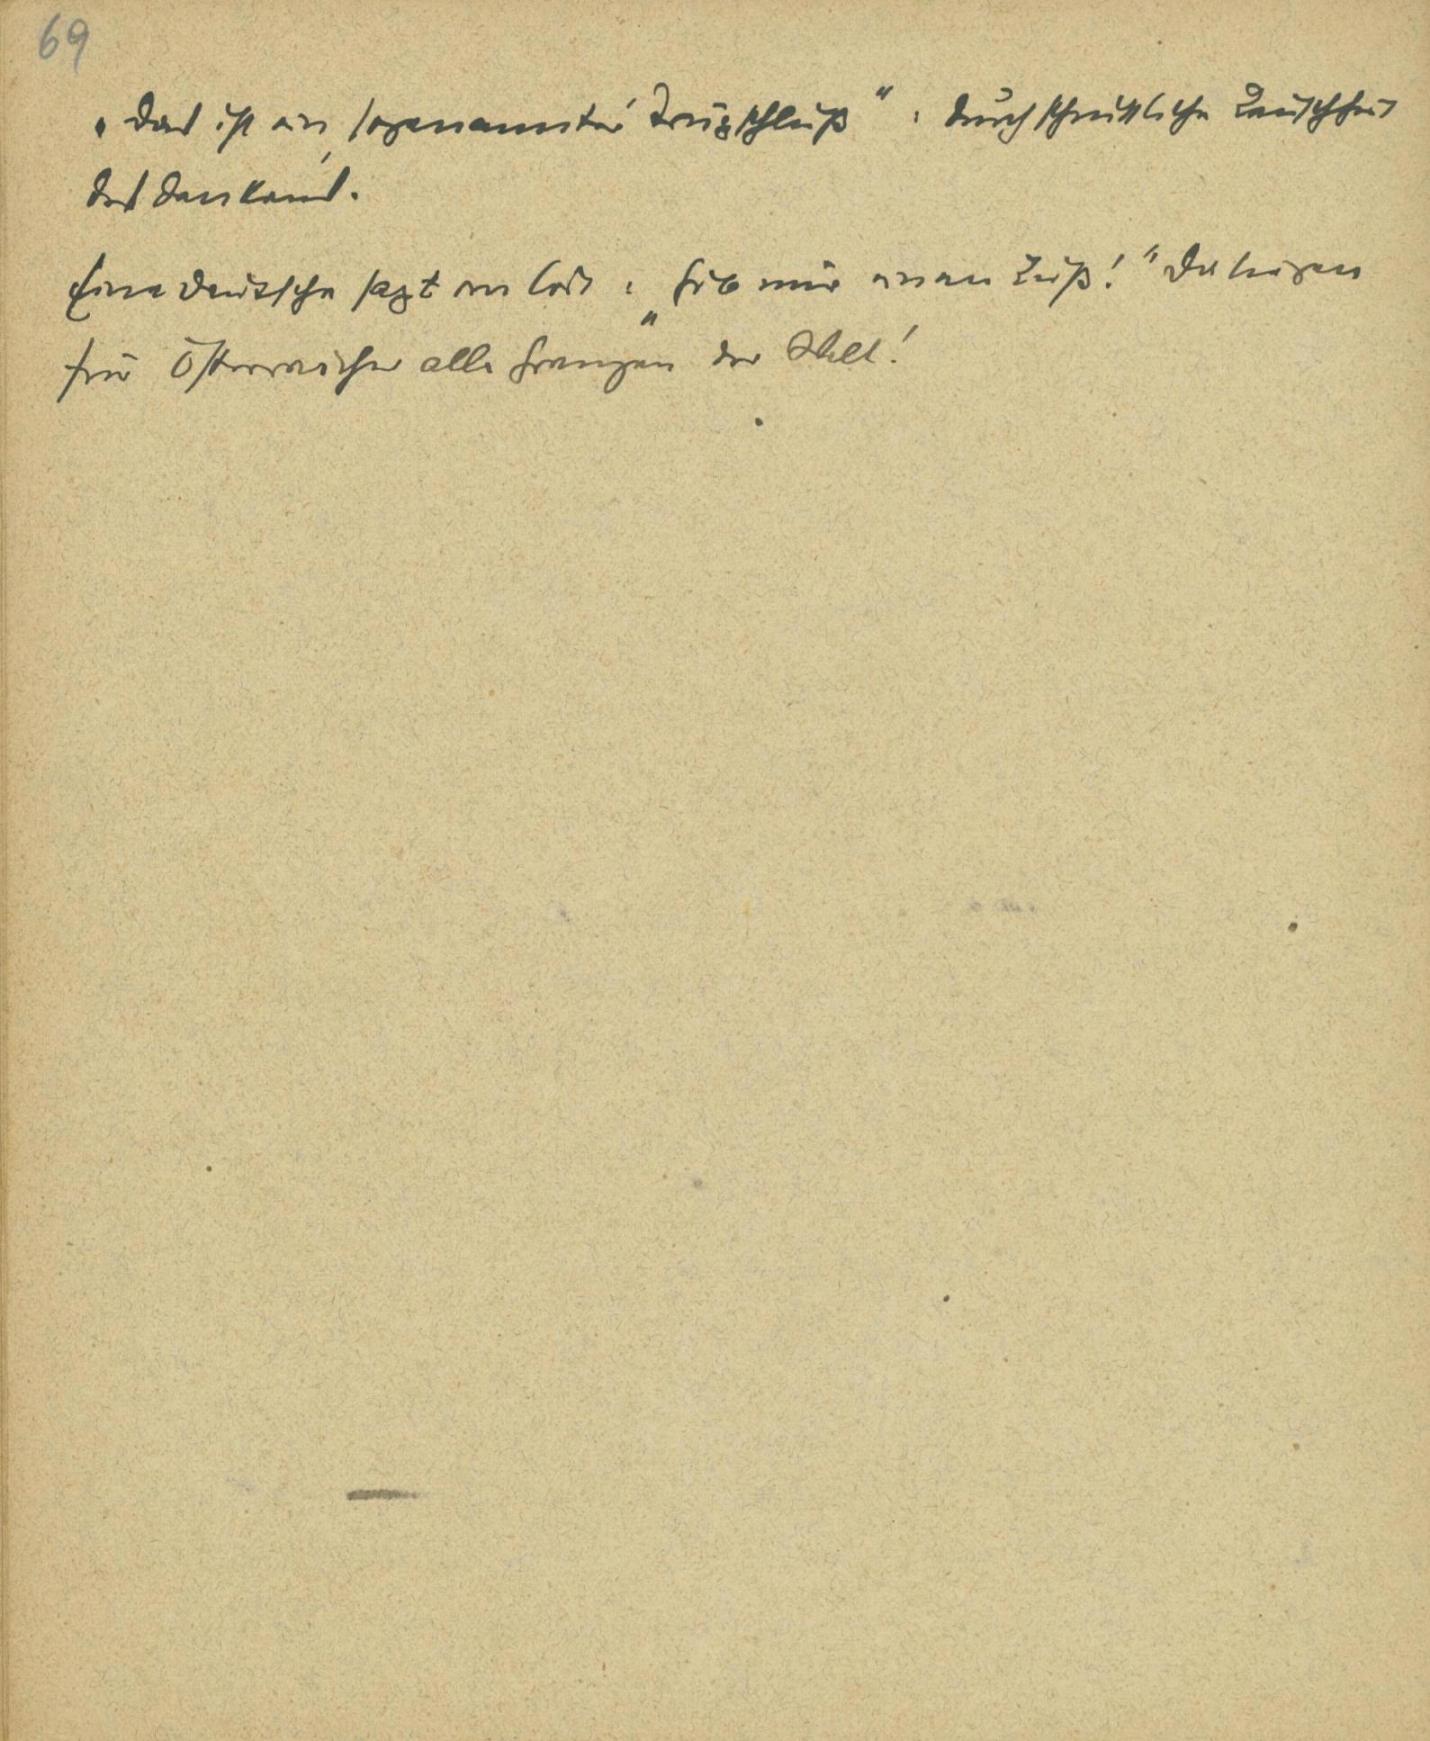 69
„Das ist ein sogenannter Trugschluß“: durchschnittliche
des Denkens.
Eine Deutsche sagt im Bett: „Gib mir einen Kuß!“ Da liegen
für Österreicher alle Grenzen der Welt!